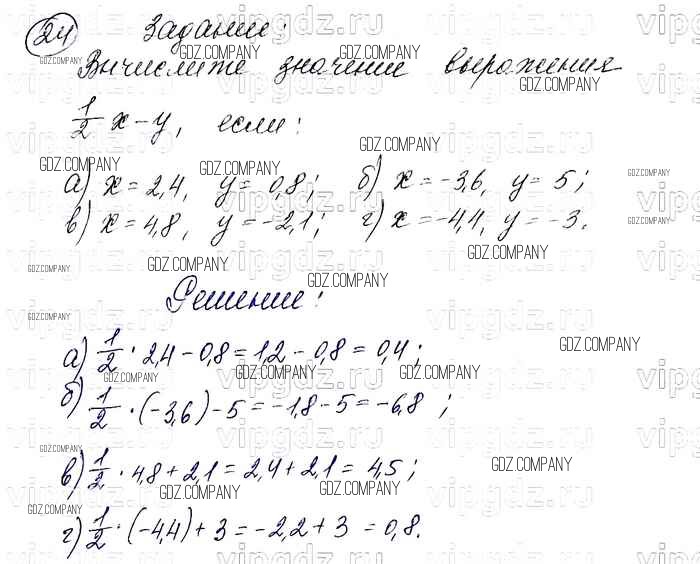 24 Задание:
Вычислите значение выражения
1/2 x - y, если:
а) x = 2,4, y = 0,8; б) x = -3,6, y = 5;
в) x = 4,8, y = -2,1; г) x = -4,4, y = -3.
Решение:
а) 1/2 · 2,4 - 0,8 = 1,2 - 0,8 = 0,4;
б) 1/2 · (-3,6) - 5 = -1,8 - 5 = -6,8;
в) 1/2 · 4,8 + 2,1 = 2,4 + 2,1 = 4,5;
г) 1/2 · (-4,4) + 3 = -2,2 + 3 = 0,8.
GDZ.COMPANY
vipgdz.ru